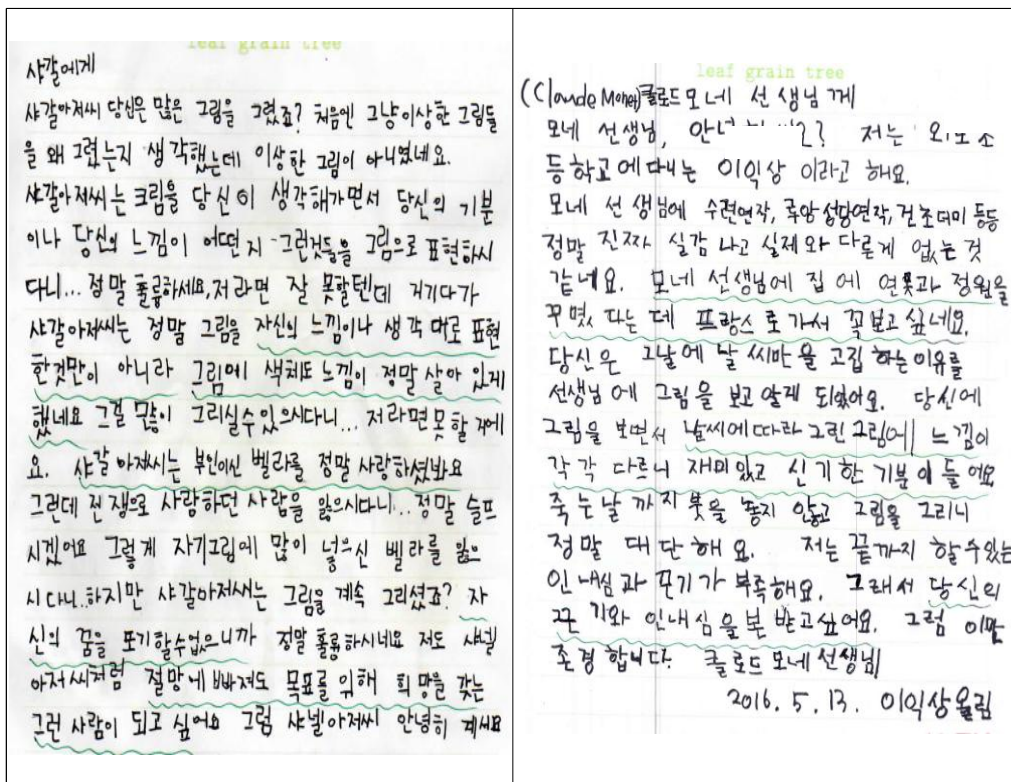 leaf grain tree
샤갈에게
샤갈아저씨 당신은 많은 그림을 그렸죠? 처음엔 그냥이상한 그림들
을 왜 그렸는지 생각했는데 이상한 그림이 아니였네요.
샤갈아저씨는 크림을 당신이 생각해가면서 당신의 기분
이나 당신의 느낌이 어떤지 그런것들을 그림으로 표현하씨
다니... 정말 훌륭하세요, 저라면 잘 못할텐데 거기다가
샤갈아저씨는 정말 그림을 자신의 느낌이나 생각 대로 표현
한것만이 아니라 그림에 색채도 느낌이 정말 살아 있게
했네요 그걸 많이 그리실수있으시다니... 저라면못할거에
요. 샤갈 아저씨는 부인이신 벨라를 정말 사랑하셨봐요
그런데 전쟁으로 사랑하던 사람을 잃으시다니... 정말 슬프
시겠어요 그렇게 자기그림에 많이 넣으신 벨라를 잃으
시다니..하지만 샤갈아저씨는 그림을 계속 그리셨죠? 자
신의 꿈을 포기할수없으니까 정말 훌륭하시네요 저도 샤넬
아저씨처럼 절망에 빠져도 목표를 위해 희망을 갖는
그런 사람이 되고 싶어요 그럼 샤넬아저씨 안녕히 계세요
leaf grain tree
(Claude Monet)클로드모네 선생님께
모네 선생님, 저는
등학교에다니는 이익상 이라고 해요.
모네 선생님에 수련연작, 루앙성당연작, 건초더미 등등
정말 진짜 실감 나고 실제와 다른게 없는 것
같네요. 모네 선생님에 집에 연못과 정원을
꾸몄다는데 프랑스로가서 꼭보고싶네요.
당신은 그날에 날씨만을 고집 하는이유를
선생님에 그림을 보고 알게 되었어요. 당신에
그림을 보면서 날씨에따라 그린그림에 느낌이
각각 다르니 재미있고 신기한 기분이 들어요
죽는날 까지 붓을 놓지 않고 그림을 그리니
정말 대단해요. 저는 끝까지 할수있는
인내심과 끈기가 부족해요. 그래서 당신의
끈기와 인내심을 본받고싶어요. 그럼 이만
존경합니다. 클로드모네선생님
2016. 5. 13. 이익상올림